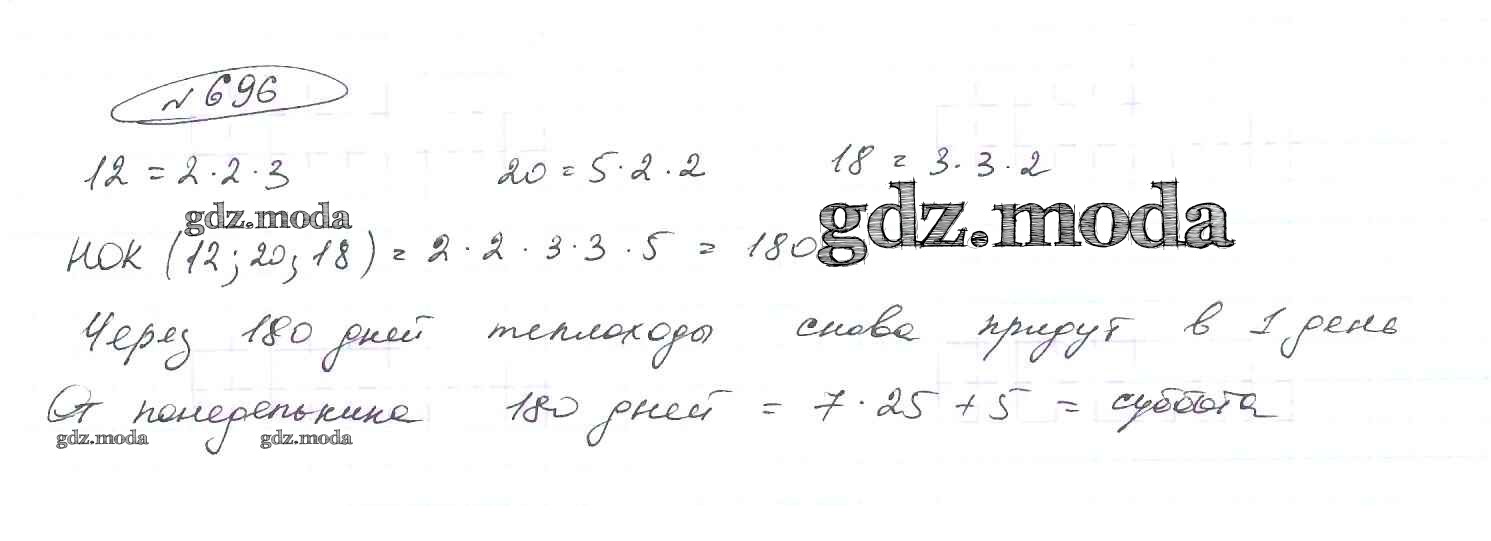 № 696
12 = 2·2·3 20 = 5·2·2 18 = 3·3·2
gdz.moda gdz.moda
НОК (12; 20; 18) = 2·2·3·3·5 = 180
Через 180 дней теплоходы снова придут в 1 день
От понедельника 180 дней = 7·25 + 5 = суббота
gdz.moda gdz.moda